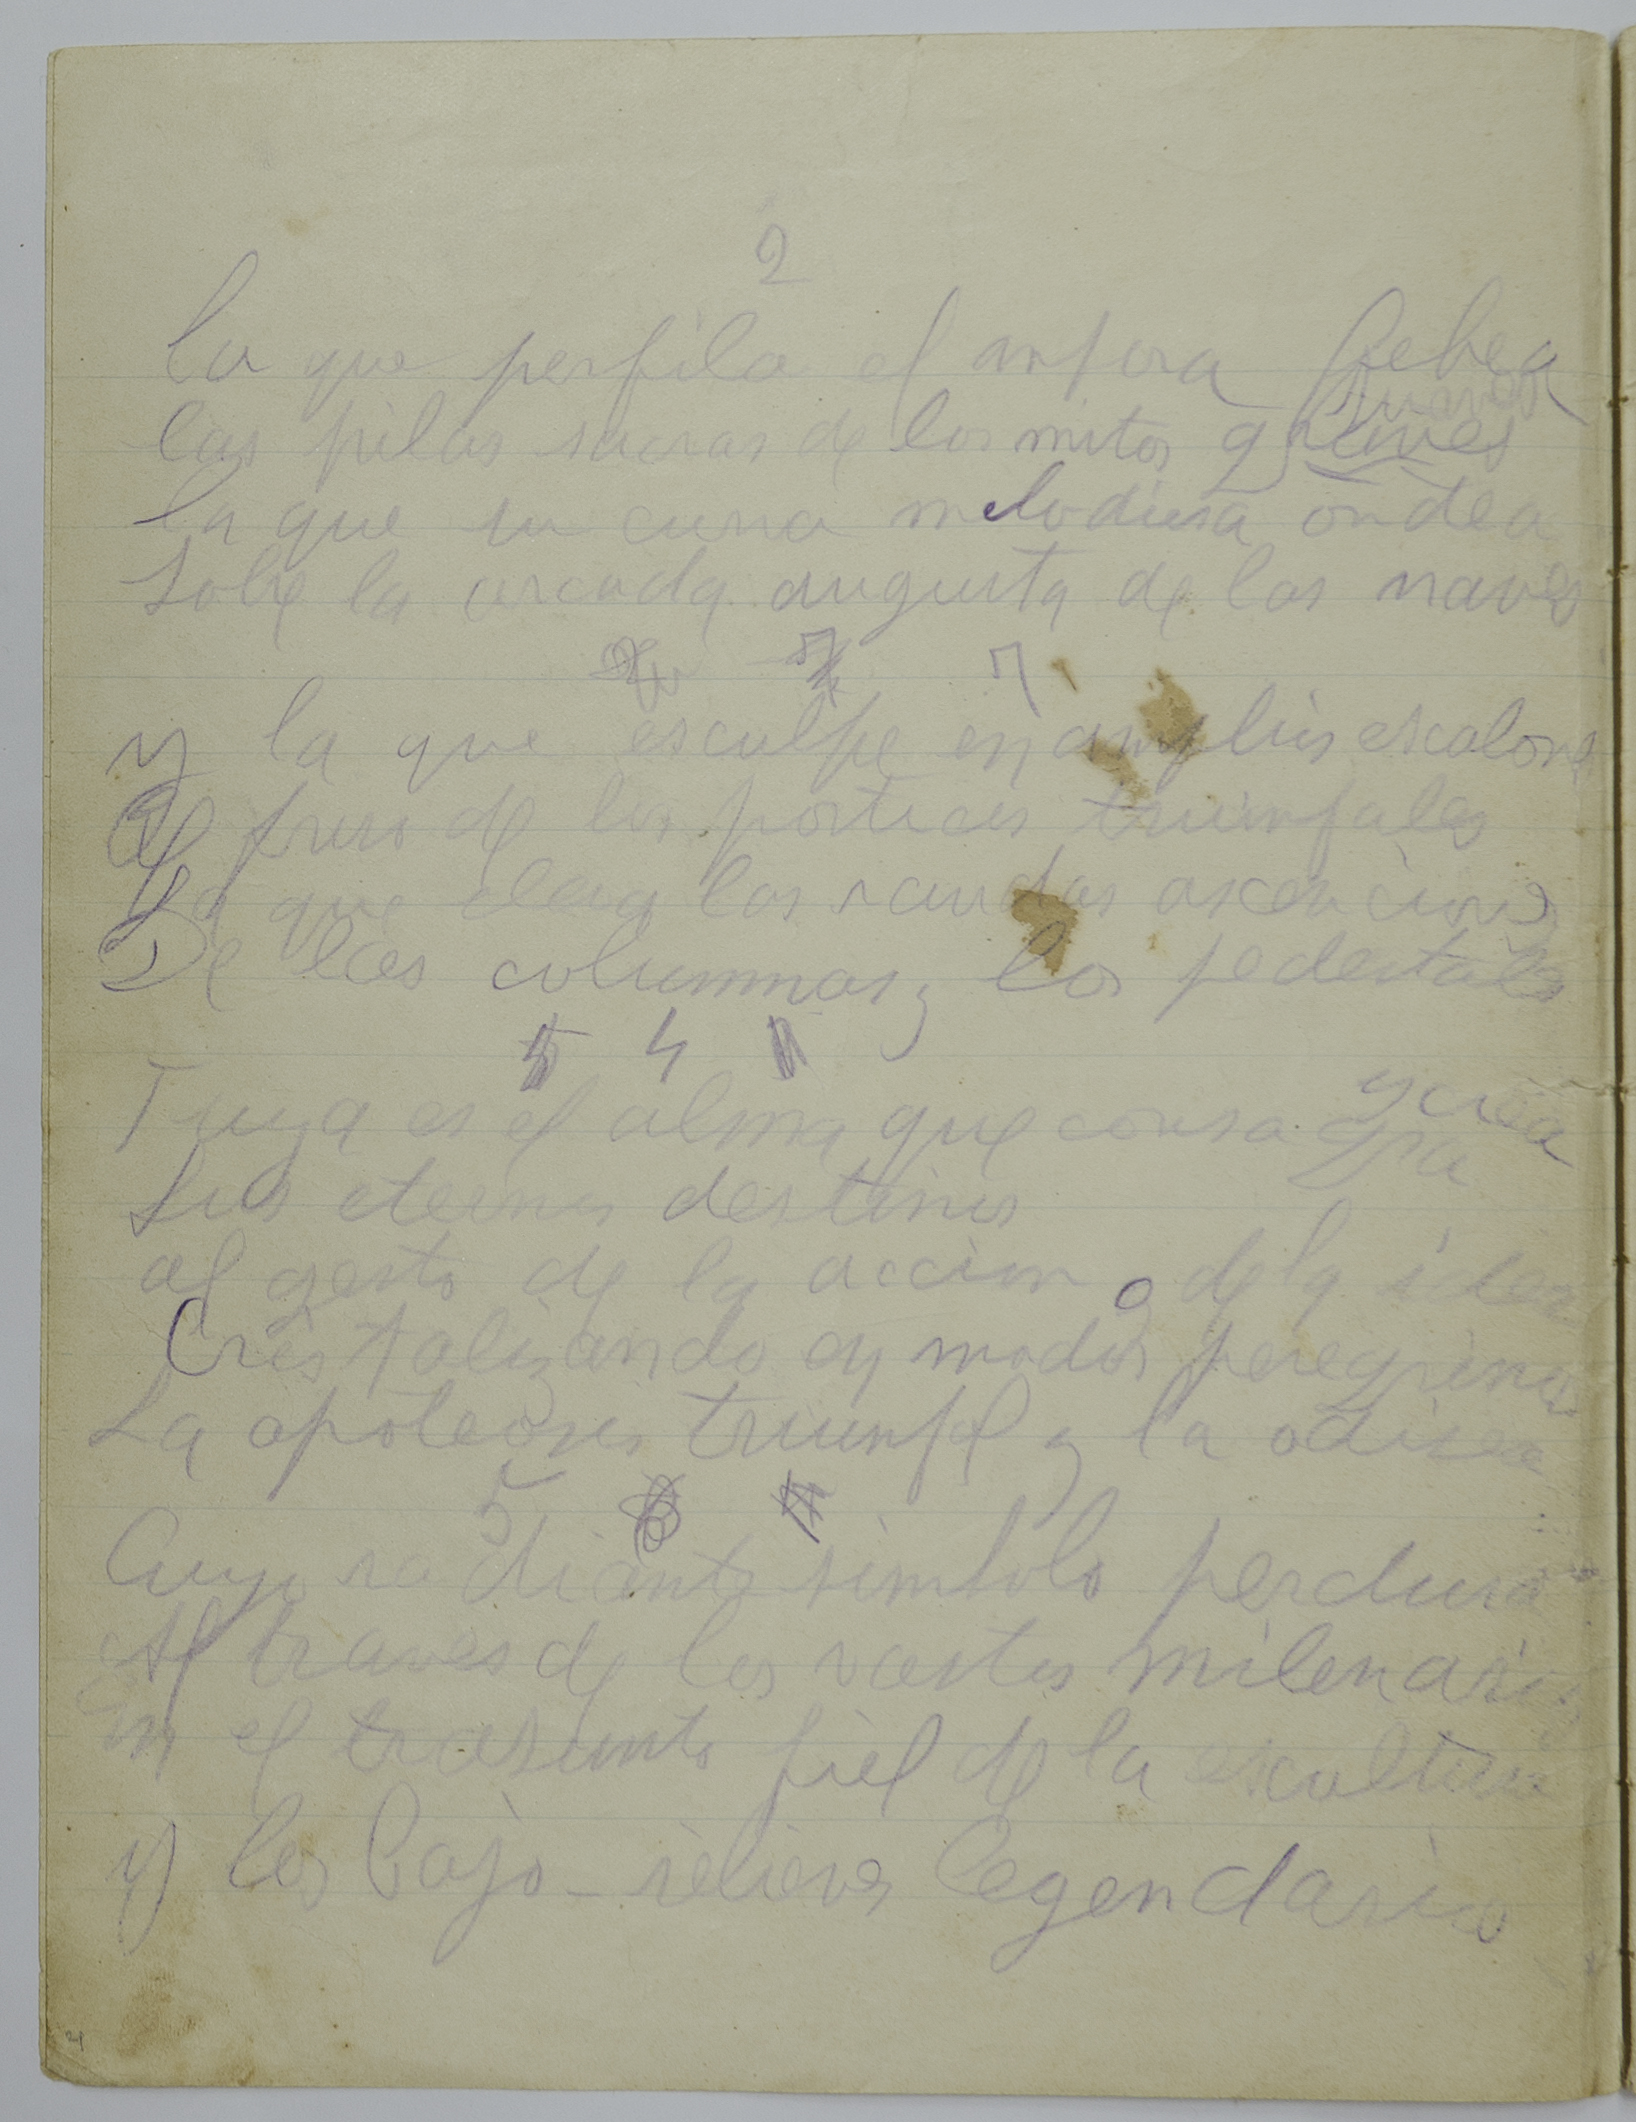 2
La que perfila el anfora Febea
suaves
las pilas sacras de los mitos graves
la que su curva melodiosa ondea
Sobre la arcada augusta de las naves
7
y la que esculpe en amplios escalones
El friso de los porticos triunfales
La que eleva las raudas ascenciones
De las columnas y los pedestales
4
y crea
Tuya es el alma que consagra
Sus eternos destinos
al gesto de la accion o de la idea
Cristalizando en modos peregrinos
La apoteosis triunfal y la odisea
5
Cuyo radiante simbolo perdura
Al traves de los vastos milenarios
En el trasunto fiel de la escultura
y los bajo-relieves legendarios
4